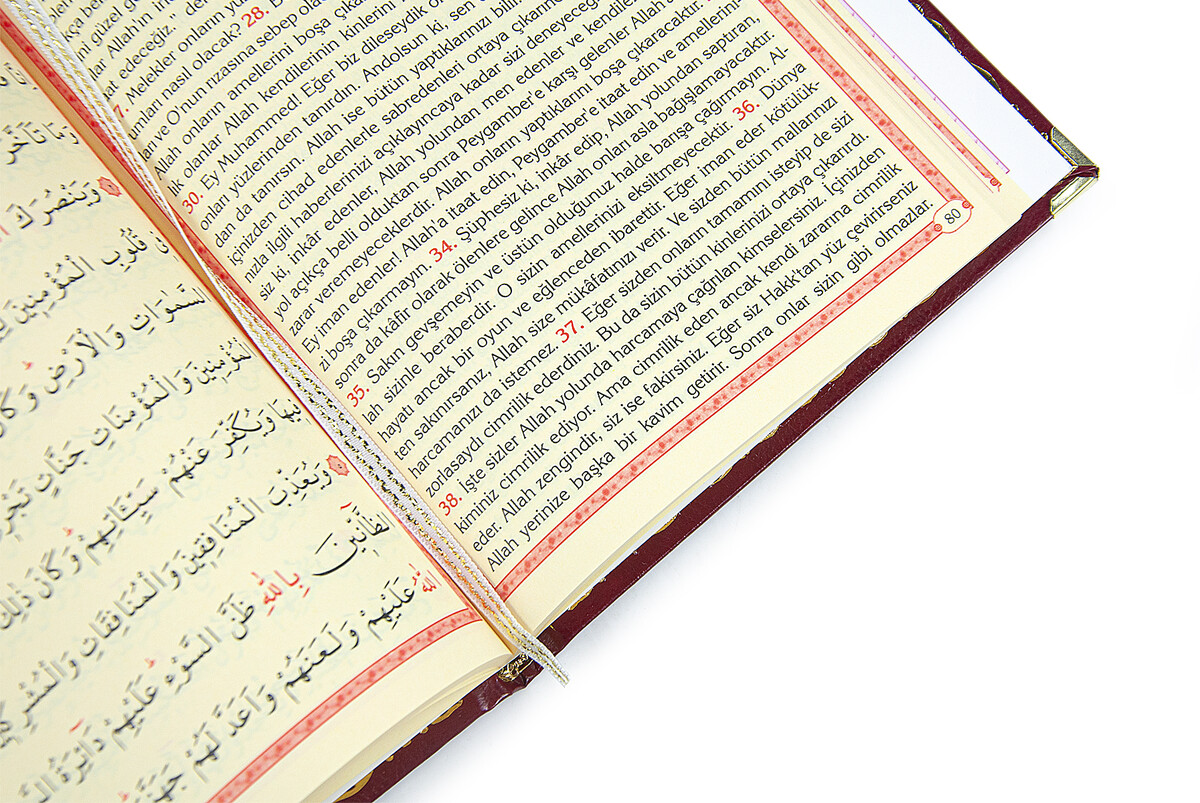 güzel
Allah'ın
edeceğiz.,,
Melekler onların
nasıl olacak? 28.
ve O'nun rızasına sebep
Allah onların amellerini boşa
lik olanlar Allah kendilerinin kinlerini
30. Ey Muhammed! Eğer biz dileseydik
onları yüzlerinden tanırdın. Andolsun ki, sen
dan da tanırsın. Allah ise bütün yaptıklarınızı
içinizden cihad edenlerle sabredenleri ortaya
nızla ilgili haberlerinizi açıklayıncaya kadar sizi
siz ki, inkâr edenler, Allah yolundan men edenler ve
yol açıkça belli olduktan sonra Peygamber'e karşı gelenler
zarar veremeyeceklerdir. Allah onların yaptıklarını boşa çıkaracaktır.
Ey iman edenler! Allah'a itaat edin, Peygamber'e itaat edin ve amellerini-
zi boşa çıkarmayın. 34. Şüphesiz ki, inkâr edip, Allah yolundan saptıran,
sonra da kâfir olarak ölenlere gelince Allah onları asla bağışlamayacaktır.
35. Sakın gevşemeyin ve üstün olduğunuz halde barışa çağırmayın. Al-
lah sizinle beraberdir. O sizin amellerinizi eksiltmeyecektir. 36. Dünya
hayatı ancak bir oyun ve eğlenceden ibarettir. Eğer iman eder kötülük-
ten sakınırsanız, Allah size mükâfatınızı verir. Ve sizden bütün mallarınızı
harcamanızı da istemez. 37. Eğer sizden onların tamamını isteyip de sizi
zorlasaydı cimrilik ederdiniz. Bu da sizin bütün kinlerinizi ortaya çıkarırdı.
38. İşte sizler Allah yolunda harcamaya çağrılan kimselersiniz. İçinizden
kiminiz cimrilik ediyor. Ama cimrilik eden ancak kendi zararına cimrilik
eder. Allah zengindir, siz ise fakirsiniz. Eğer siz Hakk'tan yüz çevirirseniz
Allah yerinize başka bir kavim getirir. Sonra onlar sizin gibi olmazlar.
80
وَيَنْصُرَكَ
قُلُوبِ الْمُؤْمِنِينَ
السَّمٰوَاتِ وَالْاَرْضِ
الْمُؤْمِنِينَ وَالْمُؤْمِنَاتِ جَنَّاتٍ
وَيُكَفِّرَ عَنْهُمْ سَيِّئَاتِهِمْ وَكَانَ ذٰلِكَ
وَيُعَذِّبَ الْمُنَافِقِينَ وَالْمُنَافِقَاتِ
الظَّٓانِّينَ بِاللّٰهِ ظَنَّ السَّوْءِ عَلَيْهِمْ دَٓائِرَةُ
اللّٰهُ عَلَيْهِمْ وَلَعَنَهُمْ وَاَعَدَّ لَهُمْ